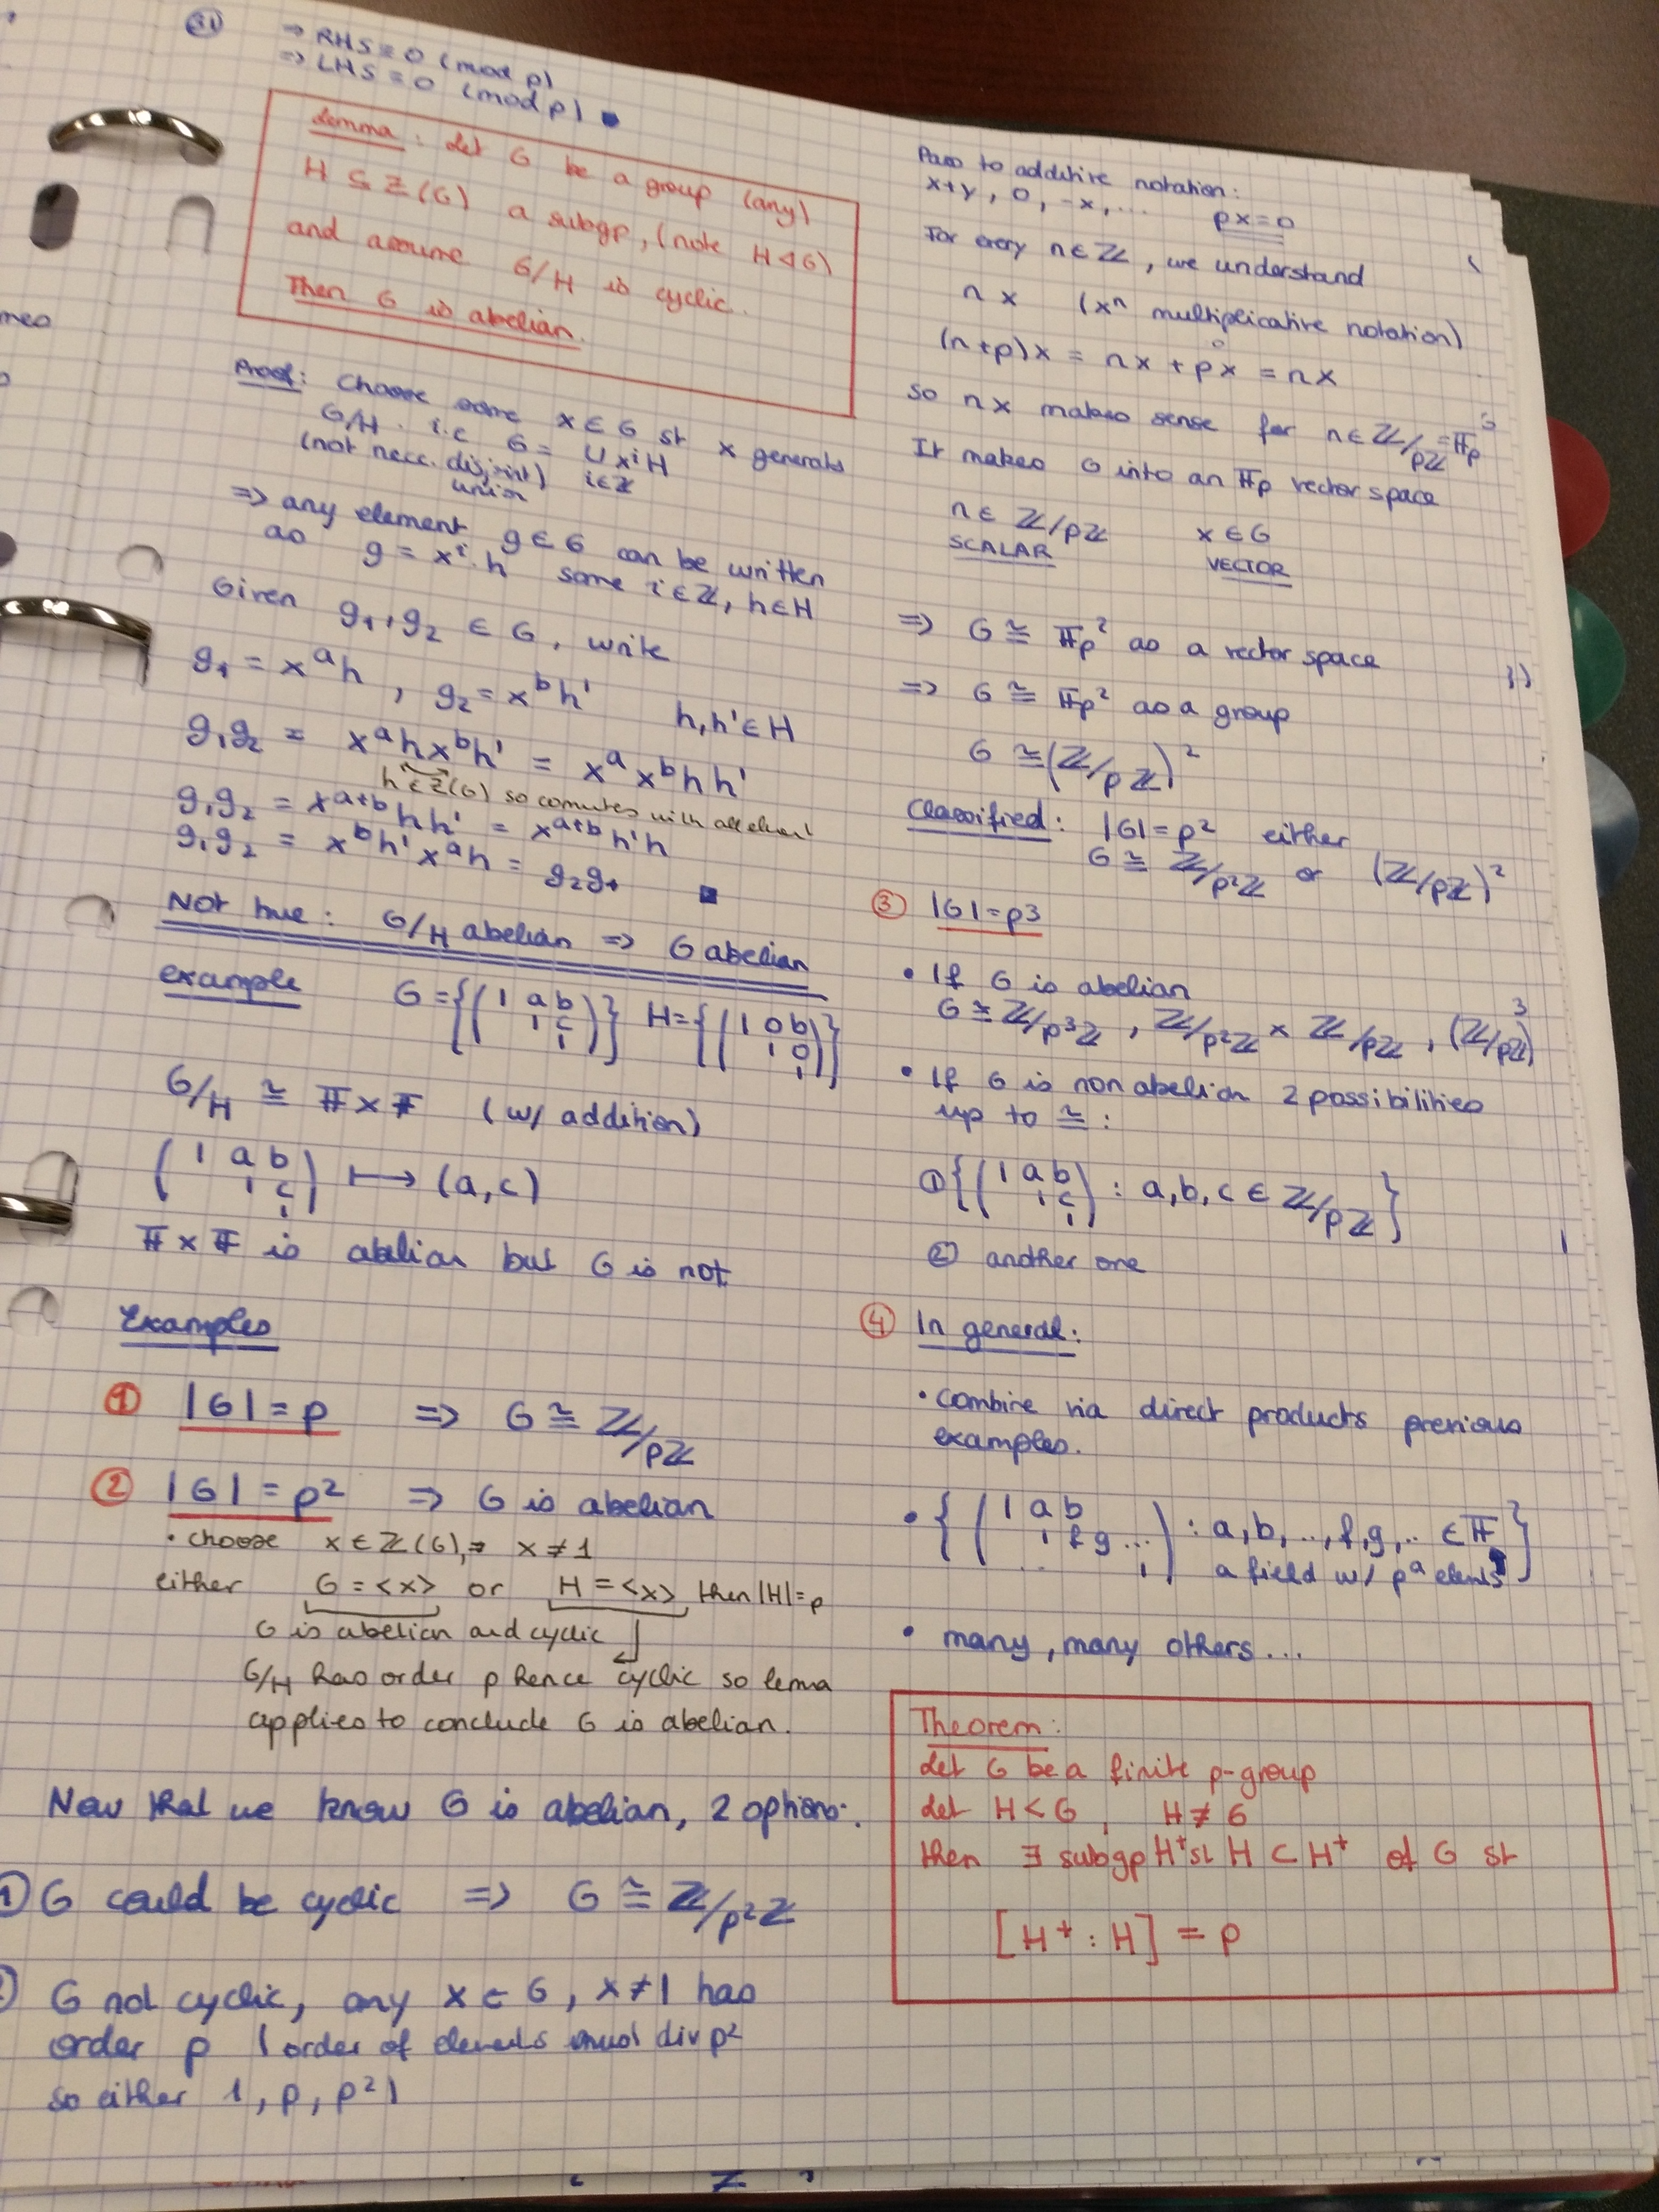 31
⇒ RHS ≡ 0 (mod p)
⇒ LHS ≡ 0 (mod p) ■
Lemma: Let G be a group (any)
H ⊆ Z(G) a subgp, (note H ◁ G)
and assume G/H is cyclic.
Then G is abelian.
Proof: Choose some x ∈ G st x generats
G/H. i.e G = ∪ xⁱH
(not necc. disjoint) i∈ℤ
union
⇒ any element g ∈ G can be written
as g = xⁱ·h some i ∈ ℤ, h ∈ H
Given g₁, g₂ ∈ G, write
g₁ = xᵃh, g₂ = xᵇh' h, h' ∈ H
g₁g₂ = xᵃhxᵇh' = xᵃxᵇhh'
h ∈ Z(G) so comutes with all element
g₁g₂ = xᵃ⁺ᵇhh' = xᵃ⁺ᵇh'h
g₁g₂ = xᵇh'xᵃh = g₂g₁ ■
Not true: G/H abelian ⇒ G abelian
example G = {(1 a b
1 c
1)} H = {(1 0 b
1 0
1)}
G/H ≅ 𝔽 × 𝔽 (w/ addition)
(1 a b
1 c
1) ↦ (a, c)
𝔽 × 𝔽 is abelian but G is not
Examples
① |G| = p ⇒ G ≅ ℤ/pℤ
② |G| = p² ⇒ G is abelian
• choose x ∈ Z(G), x ≠ 1
either G = <x> or H = <x> then |H| = p
G is abelian and cyclic
G/H has order p hence cyclic so lemma
applies to conclude G is abelian.
Now that we know G is abelian, 2 options:
① G could be cyclic ⇒ G ≅ ℤ/p²ℤ
② G not cyclic, any x ∈ G, x ≠ 1 has
order p (order of elements must div p²
so either 1, p, p²)
Pass to additive notation:
x+y, 0, -x, ... px = 0
For every n ∈ ℤ, we understand
nx (xⁿ multiplicative notation)
(n+p)x = nx + px = nx
0
so nx makes sense for n ∈ ℤ/pℤ = 𝔽p
It makes G into an 𝔽p vector space
n ∈ ℤ/pℤ x ∈ G
SCALAR VECTOR
⇒ G ≅ 𝔽p² as a vector space
⇒ G ≅ 𝔽p² as a group
G ≅ (ℤ/pℤ)²
Classified: |G| = p² either
G ≅ ℤ/p²ℤ or (ℤ/pℤ)²
③ |G| = p3
• If G is abelian
G ≅ ℤ/p³ℤ, ℤ/p²ℤ × ℤ/pℤ, (ℤ/pℤ)³
• If G is non abelian 2 possibilities
up to ≅:
① {(1 a b
1 c
1) : a, b, c ∈ ℤ/pℤ}
② another one
④ In general:
• combine via direct products previous
examples.
• {(1 a b
1 f g ...
... 1) : a, b, .., f, g, .. ∈ 𝔽
a field w/ pᵃ elems}
• many, many others...
Theorem:
Let G be a finite p-group
Let H < G, H ≠ G
then ∃ subgp H⁺ st H ⊂ H⁺ of G st
[H⁺ : H] = p